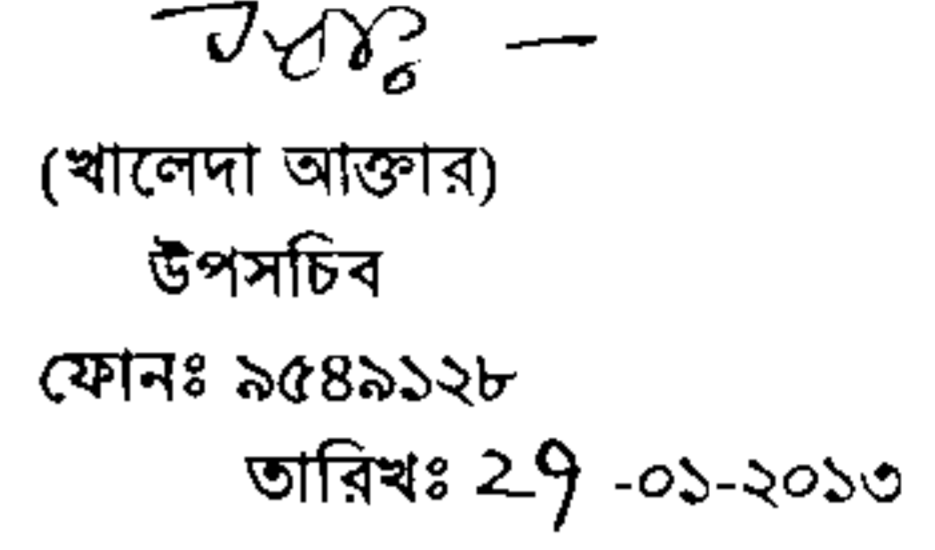 (খালেদা আক্তার)
উপসচিব
ফোনঃ ৯৫৪৯১২৮
তারিখঃ ২৭ -০১-২০১৩